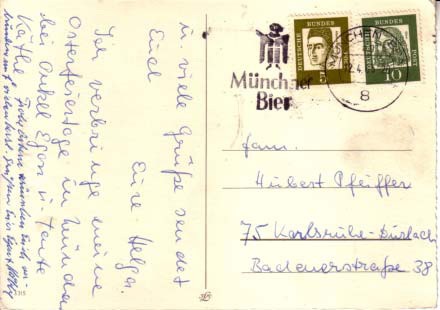 u. viele Grüße sendet
Euch
Eure Helga.
Ich verbringe meine
Osterfeiertage in München
bei Onkel Egon u. Tante
Käthe
Münchner
Bier
DEUTSCHE BUNDESPOST
5
DEUTSCHE BUNDESPOST
10
MÜNCHEN
8
Fam.
Hubert Pfeiffer
75 Karlsruhe-Durlach
Badenerstraße 38